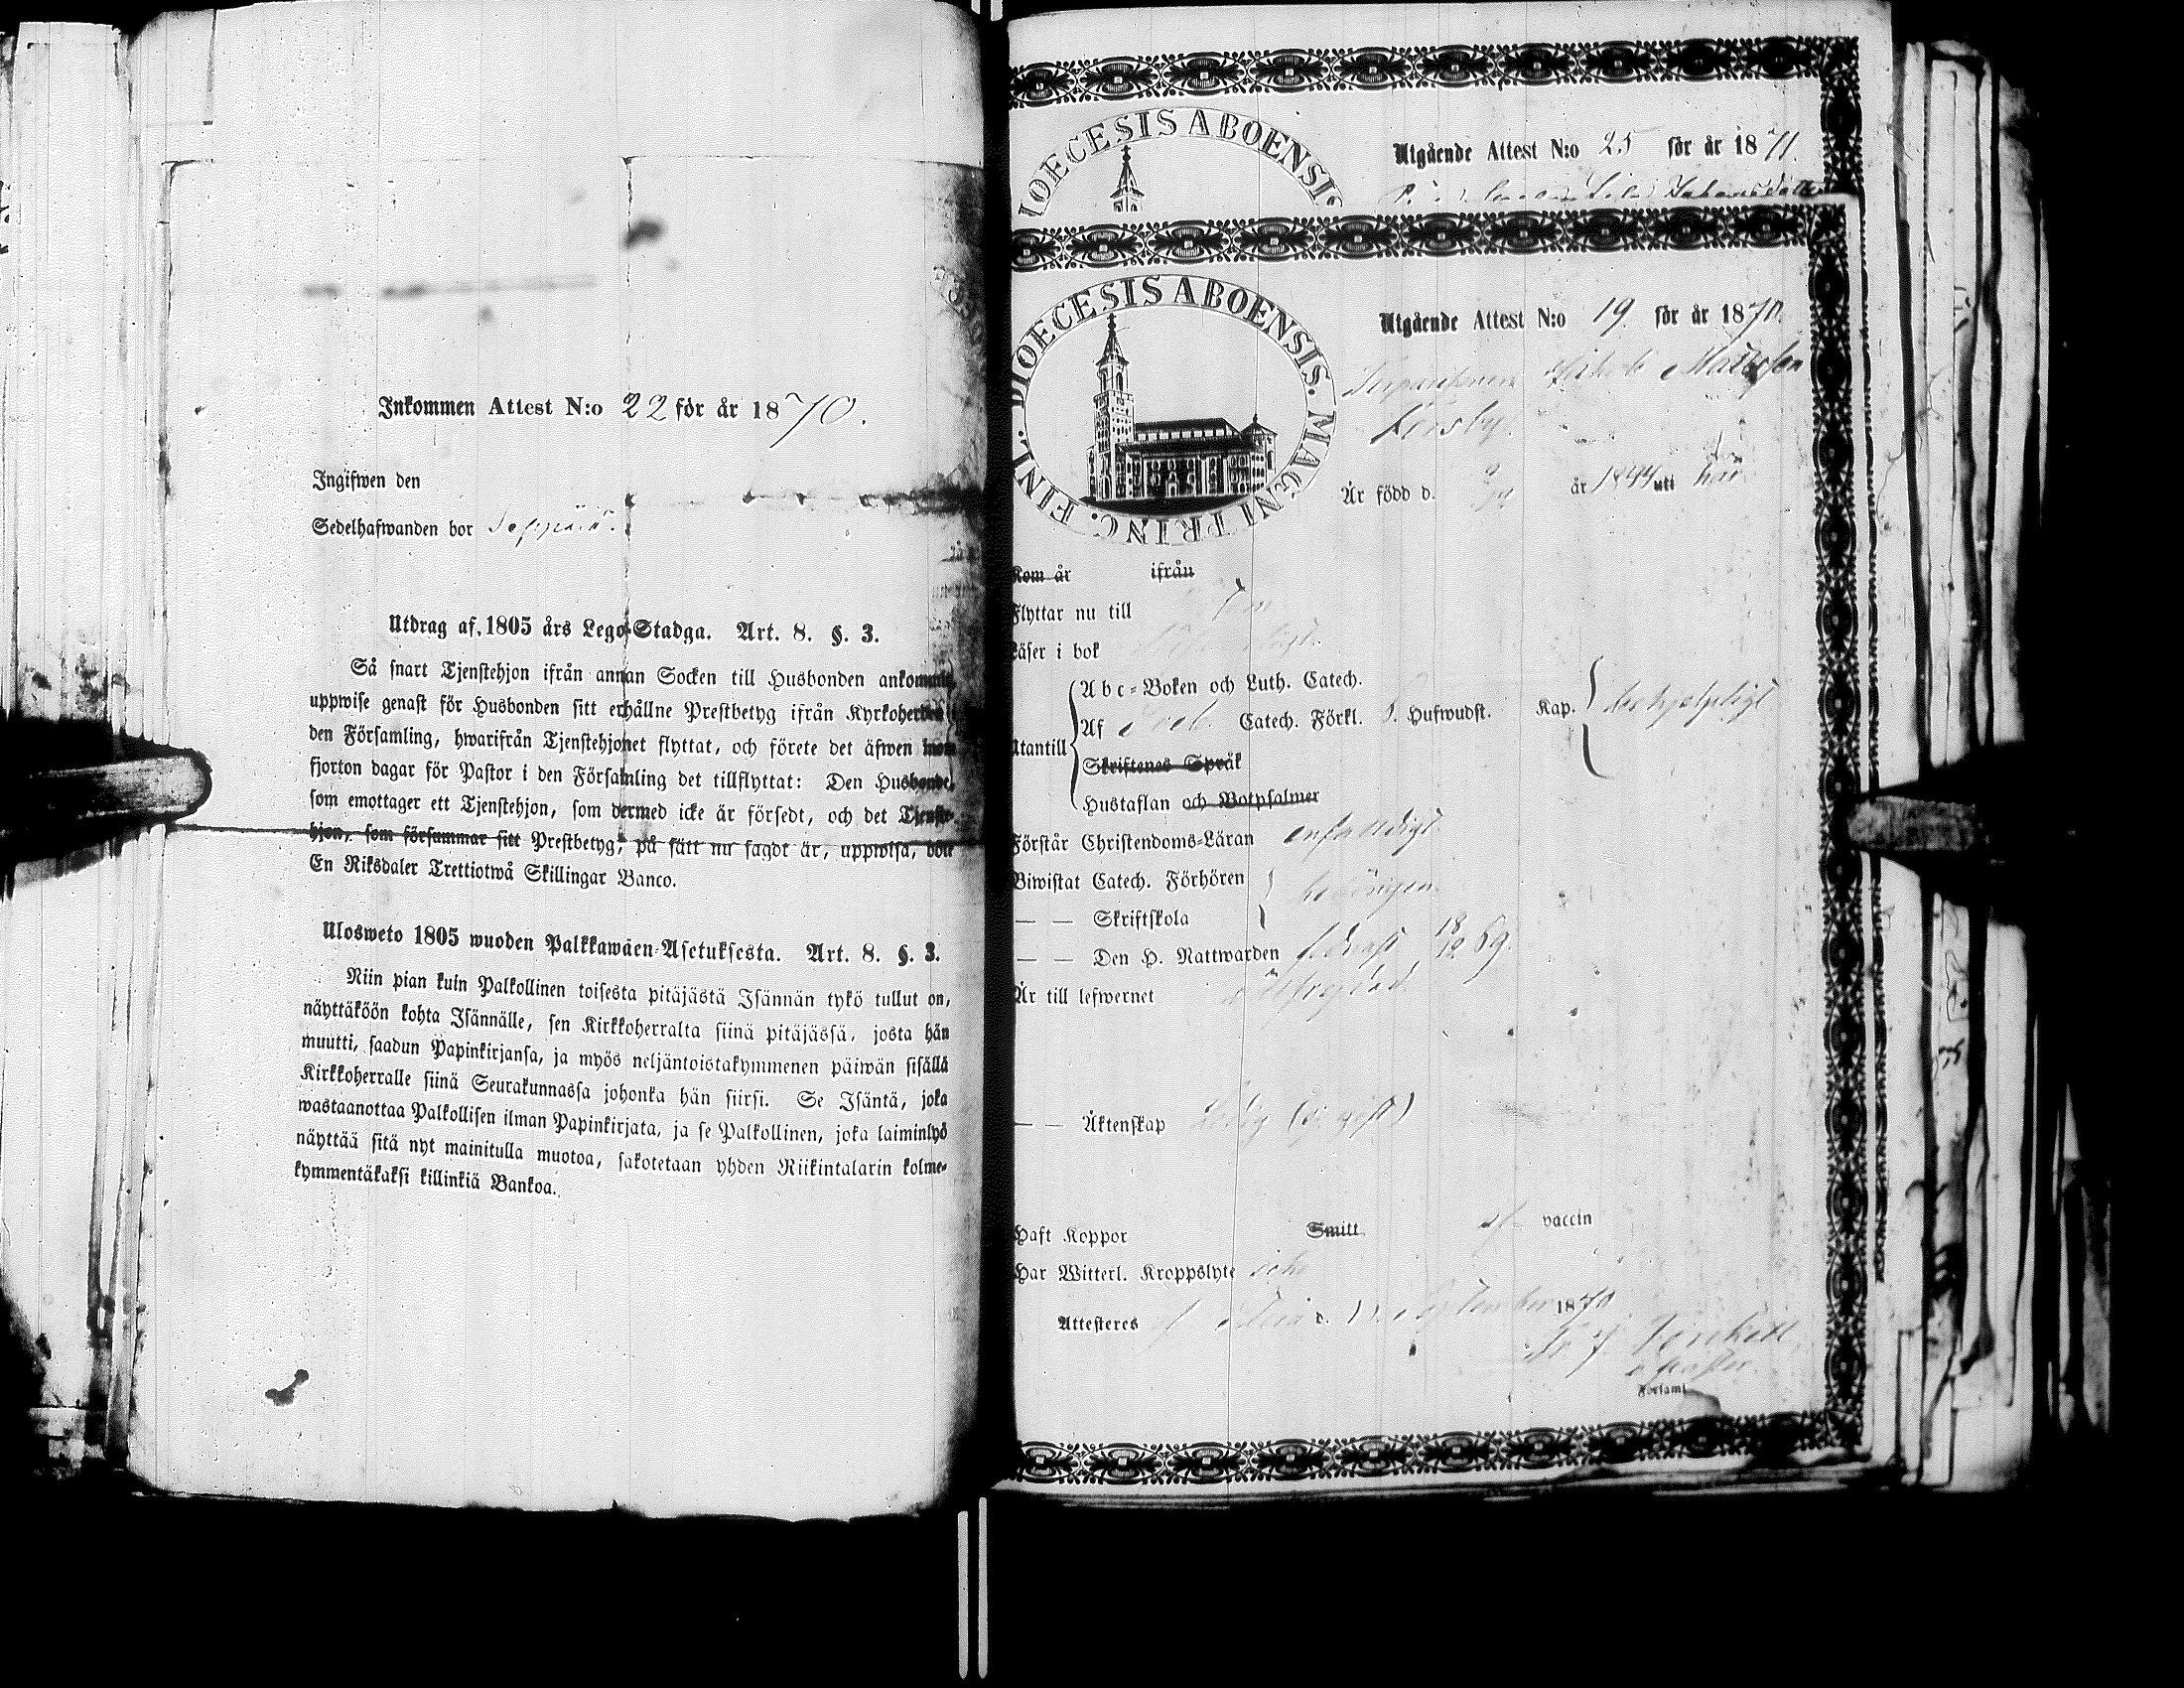 Inkommen Attest N:o 22 för år 1870.
Ingifwen den
Sedelhafwanden bor
Utdrag af 1805 års Lego-Stadga. Art. 8. §. 3.
Så snart Tjenstehjon ifrån annan Socken till Husbonden ankommit,
uppwise genast för Husbonden sitt erhållne Prestbetyg ifrån Kyrkoherden i
den Församling, hwarifrån Tjenstehjonet flyttat, och förete det äfwen inom
fjorton dagar för Pastor i den Församling det tillflyttat: Den Husbonde,
som emottager ett Tjenstehjon, som dermed icke är försedt, och det Tjenste-
hjon, som försummar sitt Prestbetyg, på sätt nu sagdt är, uppwisa, böte
En Riksdaler Trettiotwå Skillingar Banco.
Ulosweto 1805 wuoden Palkkawäen-Asetuksesta. Art. 8. §. 3.
Niin pian kuin Palkollinen toisesta pitäjästä Isännän tykö tullut on,
näyttäköön kohta Isännälle, sen Kirkkoherralta siinä pitäjässä, josta hän
muutti, saadun Papinkirjansa, ja myös neljäntoistakymmenen päiwän sisällä
Kirkkoherralle siinä Seurakunnassa johonka hän siirsi. Se Isäntä, joka
wastaanottaa Palkollisen ilman Papinkirjata, ja se Palkollinen, joka laiminlyö
näyttää sitä nyt mainitulla muotoa, sakotetaan yhden Riikintalarin kolme-
kymmentäkaksi killinkiä Bankoa.
DIOECESIS ABOENSIS
Utgående Attest N:o 25 för år 1871.
Johansdotter
DIOECESIS ABOENSIS. MAGNI PRINC. FINL.
Utgående Attest N:o 19 för år 1870.
Mattsson
År född d. år 1844 uti här
Kom år ifrån
Flyttar nu till
Läser i bok
Utantill
Abc-Boken och Luth. Catech.
Af Catech. Förkl. Hufwudst. Kap.
Skriftenes Språk
Hustaflan och Botpsalmer
Förstår Christendoms-Läran enfaldigt
Biwistat Catech. Förhören
— — Skriftskola
— — Den H. Nattwarden sednast 18/12 69.
Är till lefwernet
— — Äktenskap Ledig
Haft Koppor Smitt vaccin
Har Witterl. Kroppslyte icke
Attesteres d. September 1870
Församl